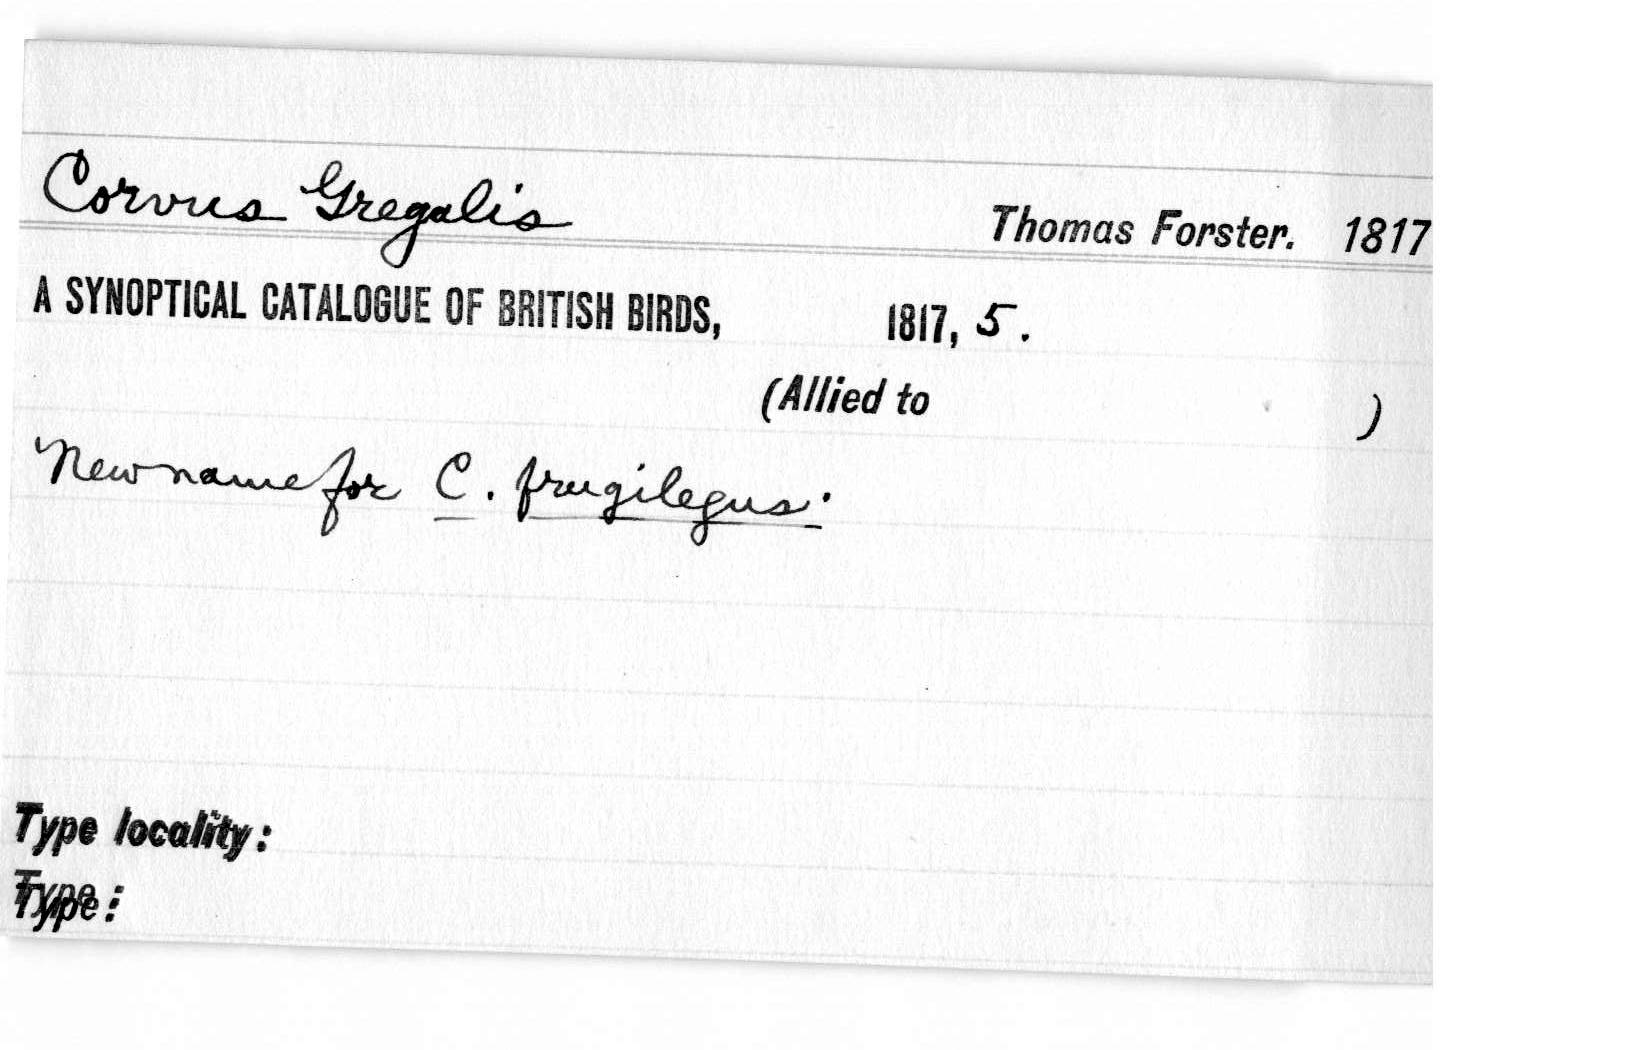 Corvus Gregalis Thomas Forster. 1817
A SYNOPTICAL CATALOGUE OF BRITISH BIRDS, 1817, 5.
(Allied to )
New name for C. frugilegus.
Type locality:
Type: